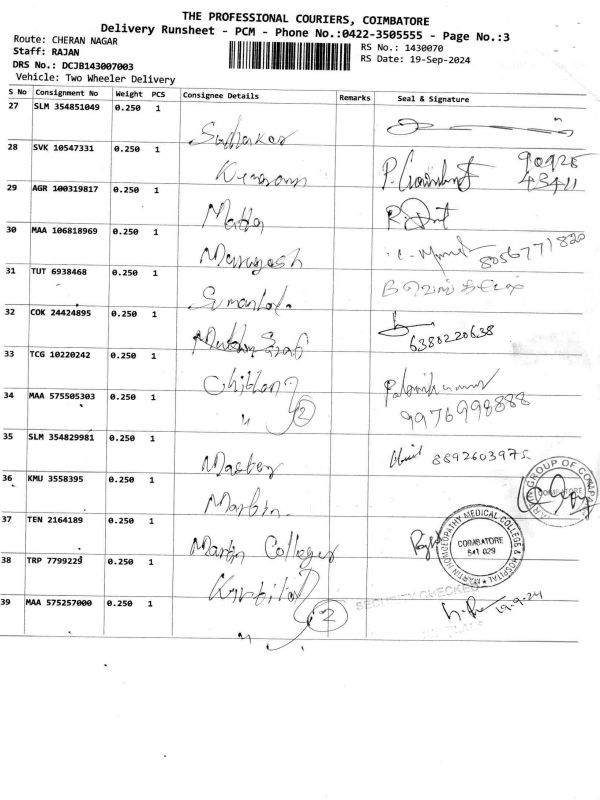 THE PROFESSIONAL COURIERS, COIMBATORE
Delivery Runsheet - PCM - Phone No.:0422-3505555 - Page No.:3
Route: CHERAN NAGAR
RS No.: 1430070
Staff: RAJAN
RS Date: 19-Sep-2024
DRS No.: DCJB143007003
Vehicle: Two Wheeler Delivery
S No Consignment No Weight PCS Consignee Details Remarks Seal & Signature
27 SLM 354851049 0.250 1
Sudhakar
28 SVK 10547331 0.250 1
90926
43411
29 AGR 100319817 0.250 1
30 MAA 106818969 0.250 1
Murugesh 8056771820
31 TUT 6938468 0.250 1
32 COK 24424895 0.250 1
6380220638
33 TCG 10220242 0.250 1
34 MAA 575505303 0.250 1
" 2 9976998888
35 SLM 354829981 0.250 1
Master 8892603975
36 KMU 3558395 0.250 1
Martin
MARTIN GROUP OF COMPANIES
COIMBATORE
37 TEN 2164189 0.250 1
Martin College
MARTIN HOMOEOPATHY MEDICAL COLLEGE & HOSPITAL
COIMBATORE
641 029
38 TRP 7799229 0.250 1
SECURITY CHECKED
39 MAA 575257000 0.250 1
" 2 19-9-24